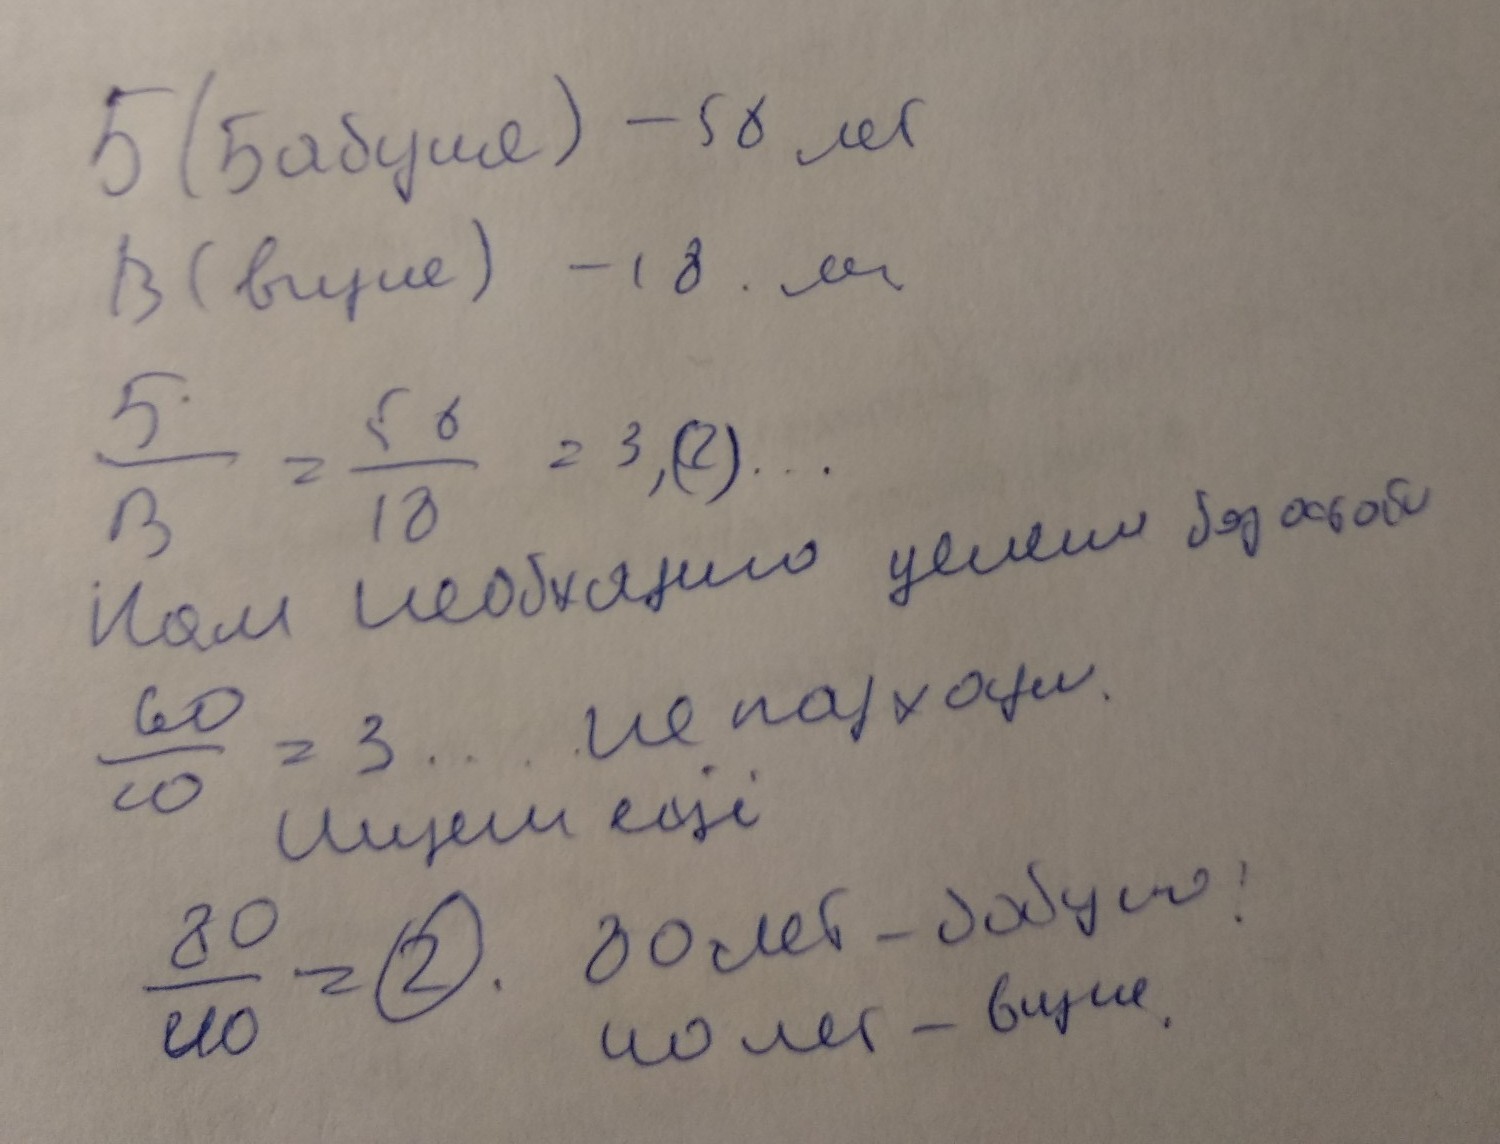 Б (Бабушке) – 58 лет
В (внучке) – 18 лет
Б/В = 58/18 = 3,(2)...
Нам необходимо целени без остатка
60/20 = 3 .... не подходит.
ищем ещё
80/40 = 2. 80 лет – бабушке!
40 лет – внучке.